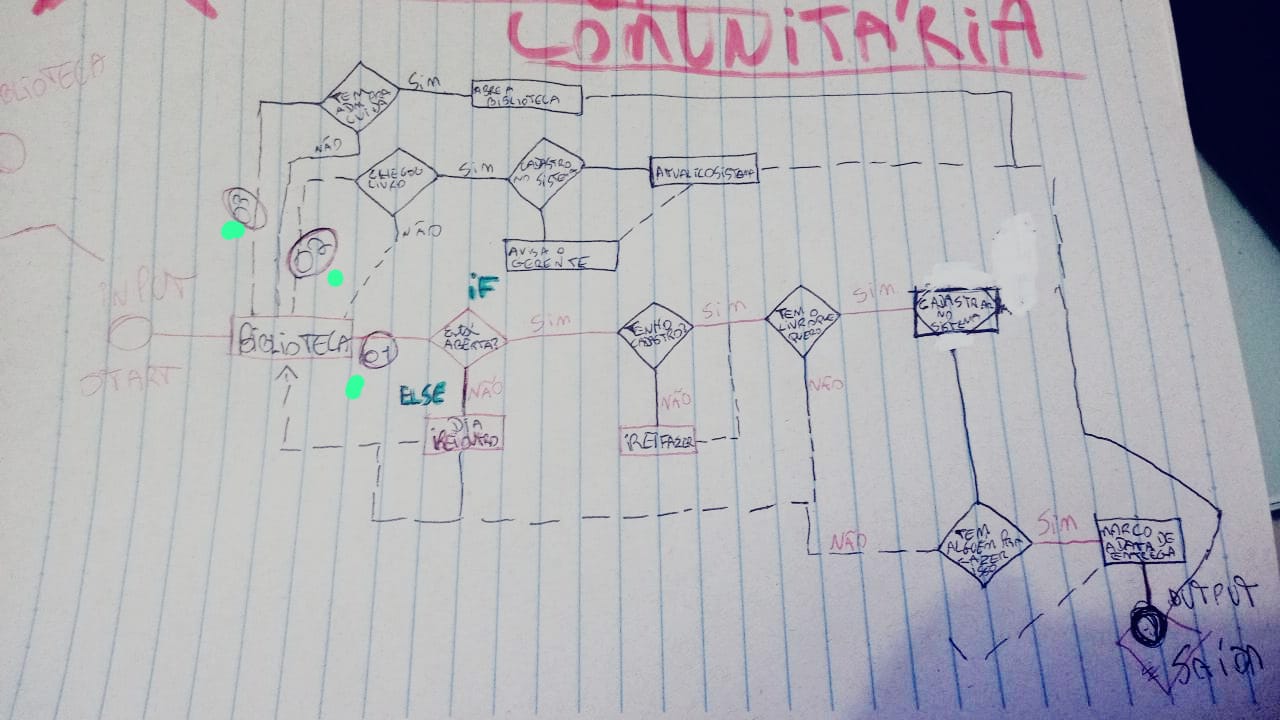 COMUNITÁRIA
BLIOTECA
SIM
ABRE A
BIBLIOTECA
TEM
NÃO
CHEGOU
LIVRO
SIM
CADASTRO
NO SISTEMA
ATUALIZO SISTEMA
NÃO
AVISA O
GERENTE
03
02
INPUT
START
BIBLIOTECA
01
IF
ESTÁ
ABERTA?
SIM
TENHO
CADASTRO?
SIM
TEM O
LIVRO QUE
QUERO
SIM
CADASTRAR
NO
SISTEMA
ELSE
NÃO
DIA
IREI OUTRO
NÃO
IREI FAZER
NÃO
NÃO
TEM
ALGUEM PRA
FAZER
ISSO
SIM
MARCO
A DATA DE
ENTREGA
OUTPUT